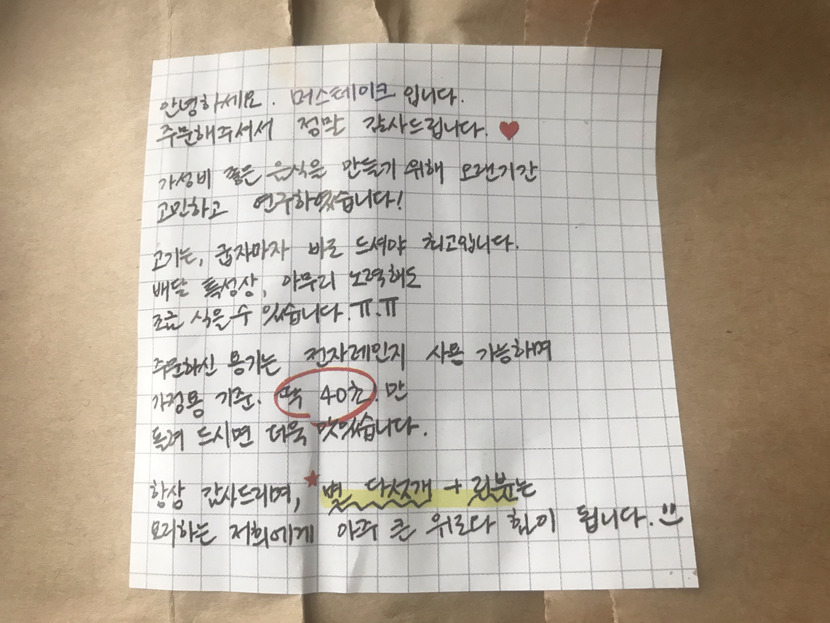 안녕하세요. 머스테이크입니다.
주문해주셔서 정말 감사드립니다. ♥
가성비 좋은 음식을 만들기 위해 오랜기간
고민하고 연구하였습니다!
고기는, 굽자마자 바로 드셔야 최고입니다.
배달 특성상, 아무리 노력해도
조금 식을 수 있습니다.ㅠ.ㅠ
주문하신 용기는 전자레인지 사용 가능하며
가정용 기준. 딱 40초.만
돌려 드시면 더욱 맛있습니다.
항상 감사드리며, ★별 다섯개 + 리뷰는
요리하는 저희에게 아주 큰 위로와 힘이 됩니다.